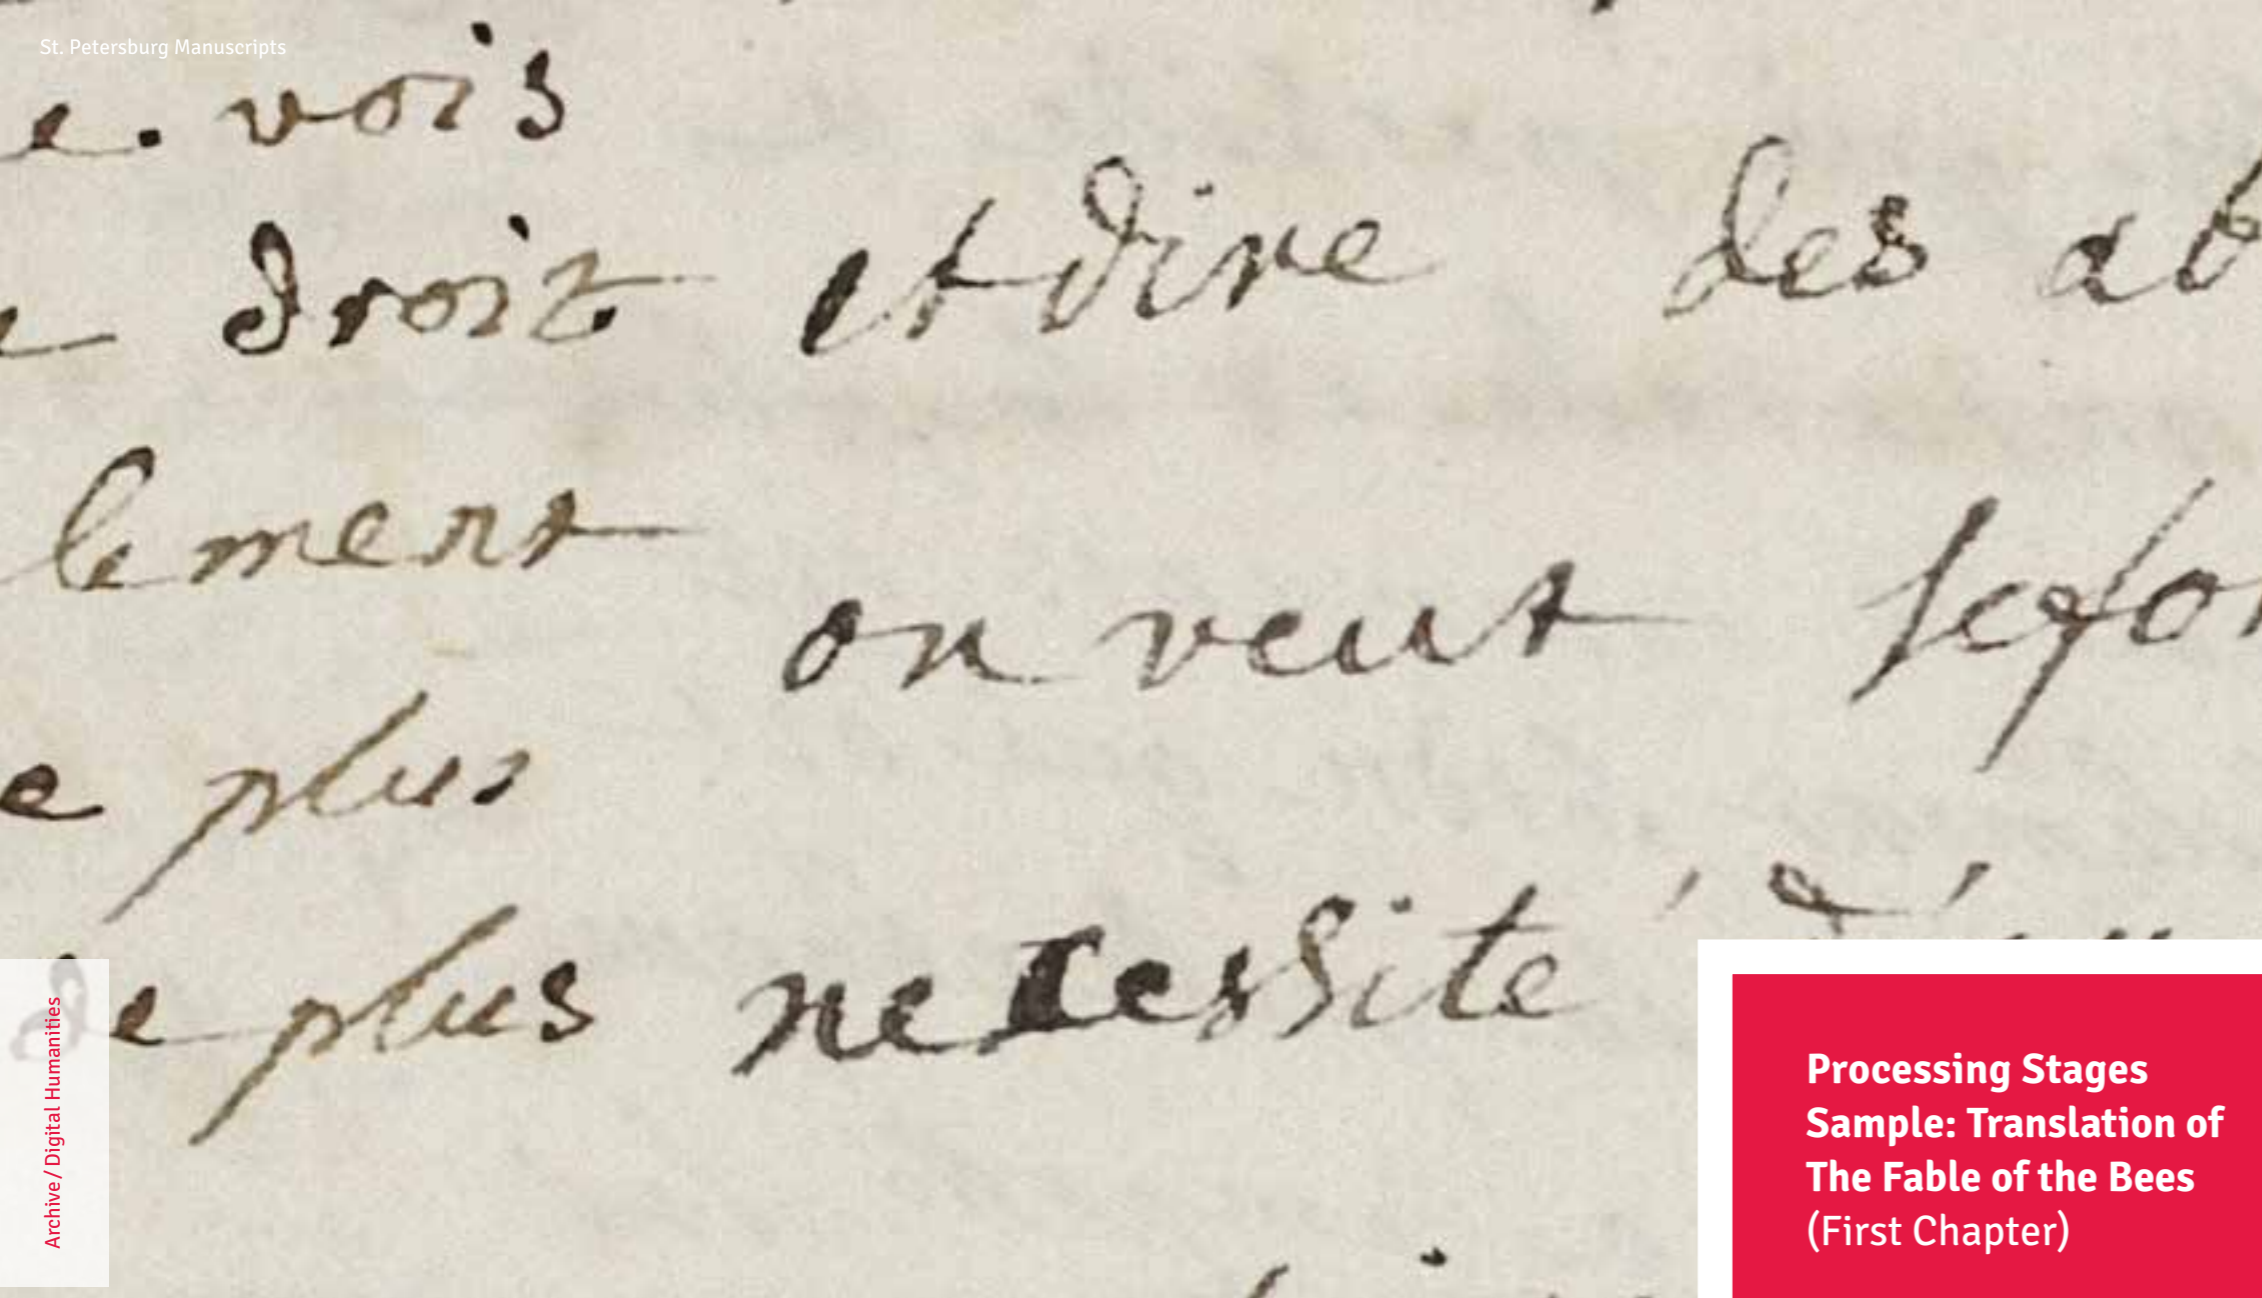 St. Petersburg Manuscripts
e. vois
droit et dire des ab
lement
on veut se fo
e plus
de plus necessité
Archive / Digital Humanities
Processing Stages
Sample: Translation of
The Fable of the Bees
(First Chapter)